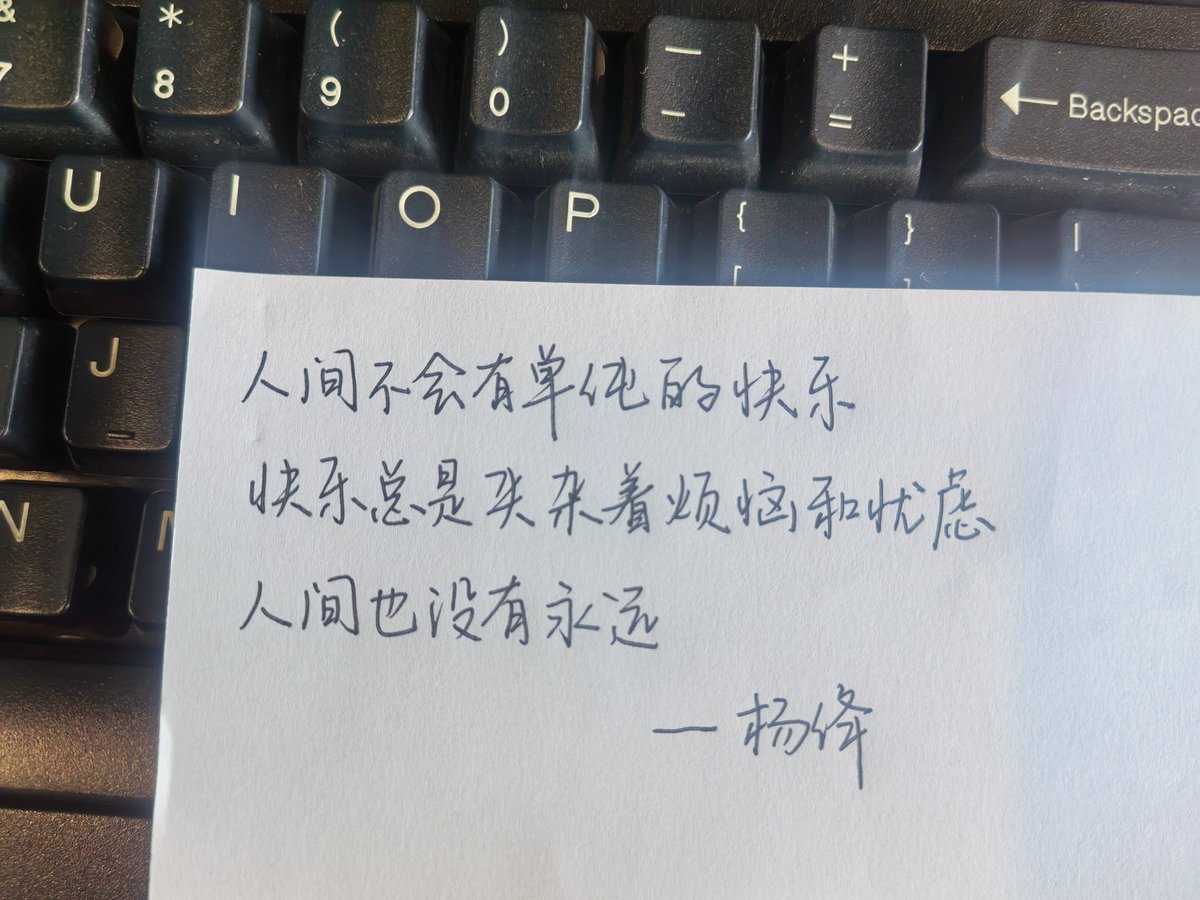 & * ( ) — + ← Backspac
7 8 9 0 - =
U I O P { } |
[ ]
J
N
人间不会有单纯的快乐
快乐总是夹杂着烦恼和忧虑
人间也没有永远
— 杨绛